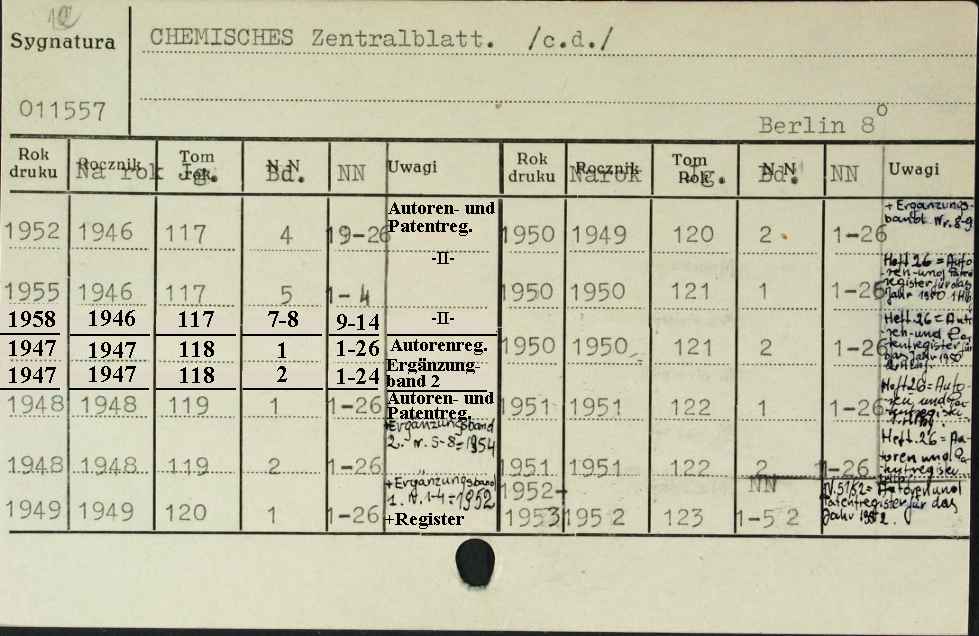 Sygnatura
011557
CHEMISCHES Zentralblatt. /c.d./
Berlin 8°
Rok druku Rocznik Na rok Tom Rok Jg. N.N. Bd. NN Uwagi
1952 1946 117 4 19-26 Autoren- und Patentreg.
1955 1946 117 5 1-4 -II-
1958 1946 117 7-8 9-14 -II-
1947 1947 118 1 1-26 Autorenreg.
1947 1947 118 2 1-24 Ergänzungband 2
1948 1948 119 1 1-26 Autoren- und Patentreg.
+Ergänzungsband 2. Nr. 5-8=1954
1948 1948 119 2 1-26 "
+Ergänzungsband 1. Nr. 1-4=1952
1949 1949 120 1 1-26 +Register
Rok druku Rocznik Na rok Tom Rok Jg. N.N. Bd. NN Uwagi
1950 1949 120 2 1-26 + Ergänzungsbandt. Nr. 8-9
1950 1950 121 1 1-26 Heft 26 = Autoren-und register für das Jahr 1950
1950 1950 121 2 1-26 Heft 26 = Autoren-und das Jahr 1950
1951 1951 122 1 1-26 Heft 26 = Autoren und
1951 1951 122 2 1-26 Heft 26 = Autoren und
NN
1952-1953 1952 123 1-52 N. 51/52 = Autoren und Patentregister für das Jahr 1952.